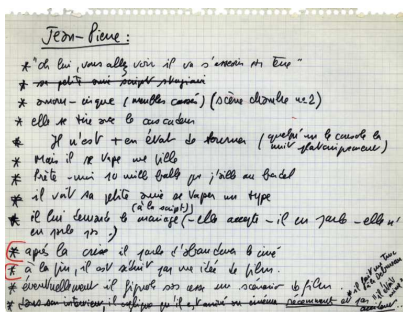 Jean-Pierre :
* "ah lui, vous allez voir il va s'asseoir par terre"
* sa petite amie script stagiaire
* amour-cirque (meubles cassés) (scène chambre nº 2)
* elle se tire avec le cascadeur
* Il n'est + en état de tourner (quelqu'un le console la
nuit platoniquement)
* Mais il se tape une fille
* Prête-moi 10 mille balles que j'aille au bordel
* il voit sa petite amie se taper un type
(à la script?)
* il lui demande le mariage (-elle accepte - il en parle - elle n'
en parle pas.)
* après la crise il parle d'abandonner le ciné
* à la fin, il est séduit par une idée de film.
* éventuellement il fignole un scénario de film
* dans son interview, il explique qu'il est arrivé au cinéma récemment et par
accident.